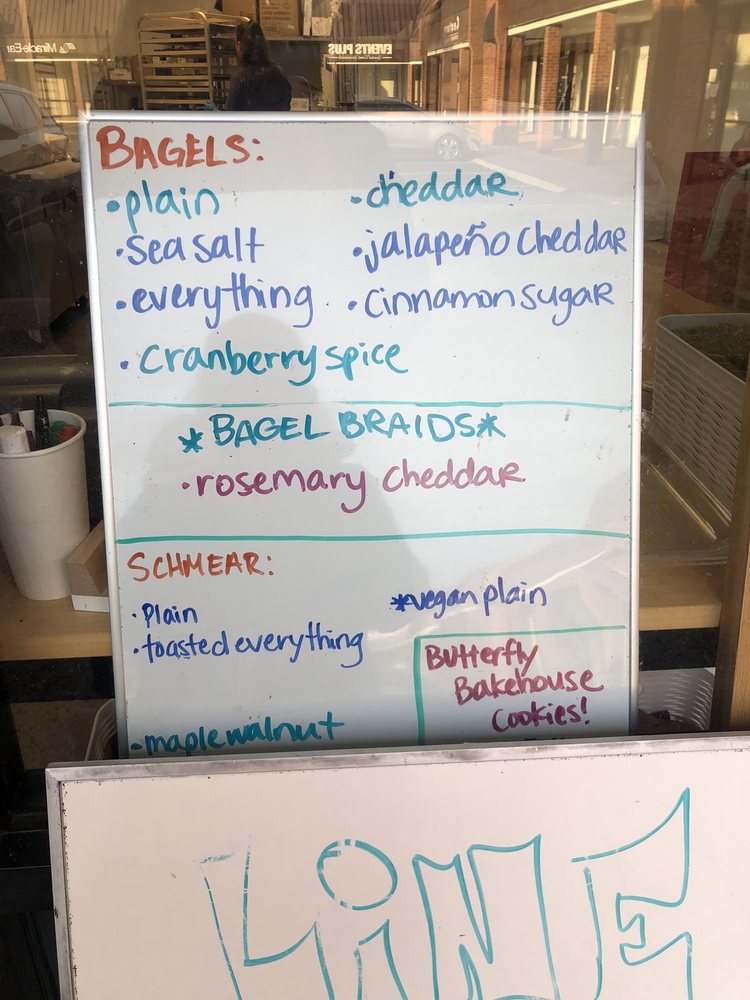 Miracle-Ear
EVENTS PLUS
BAGELS:
•plain
•cheddar
•sea salt
•jalapeño cheddar
•everything
•cinnamon sugar
•cranberry spice
*BAGEL BRAIDS*
•rosemary cheddar
SCHMEAR:
•Plain
*vegan plain
•toasted everything
Butterfly
Bakehouse
Cookies!
•maple walnut
LiNE